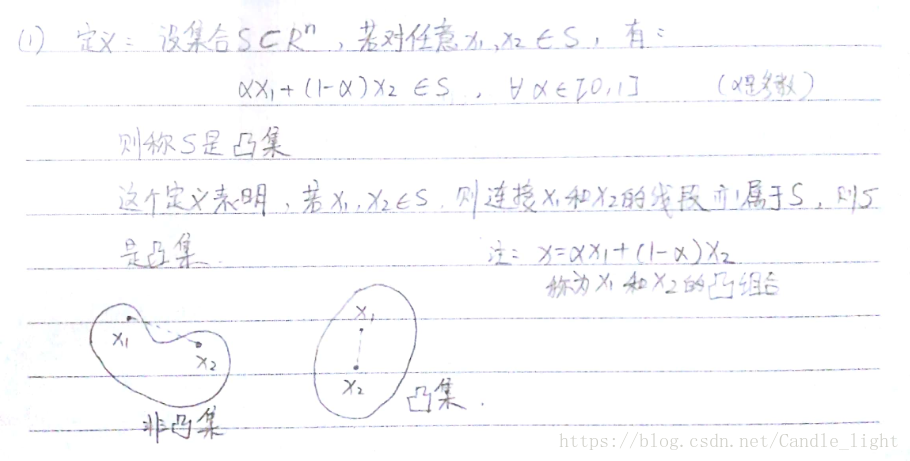 (1) 定义：设集合S⊂Rⁿ，若对任意x₁,x₂∈S，有：
αx₁+(1-α)x₂∈S，∀α∈[0,1] (α是参数)
则称S是凸集
这个定义表明，若x₁,x₂∈S，则连接x₁和x₂的线段亦属于S，则S
是凸集. 注：x=αx₁+(1-α)x₂
称为x₁和x₂的凸组合
x₁ x₂
x₁ x₂
非凸集 凸集.
https://blog.csdn.net/Candle_light